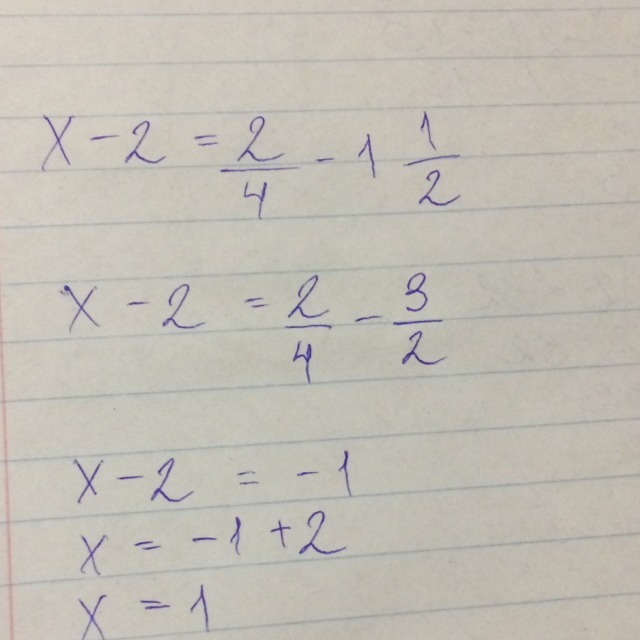 x - 2 = 2/4 - 1 1/2
x - 2 = 2/4 - 3/2
x - 2 = -1
x = -1 + 2
x = 1